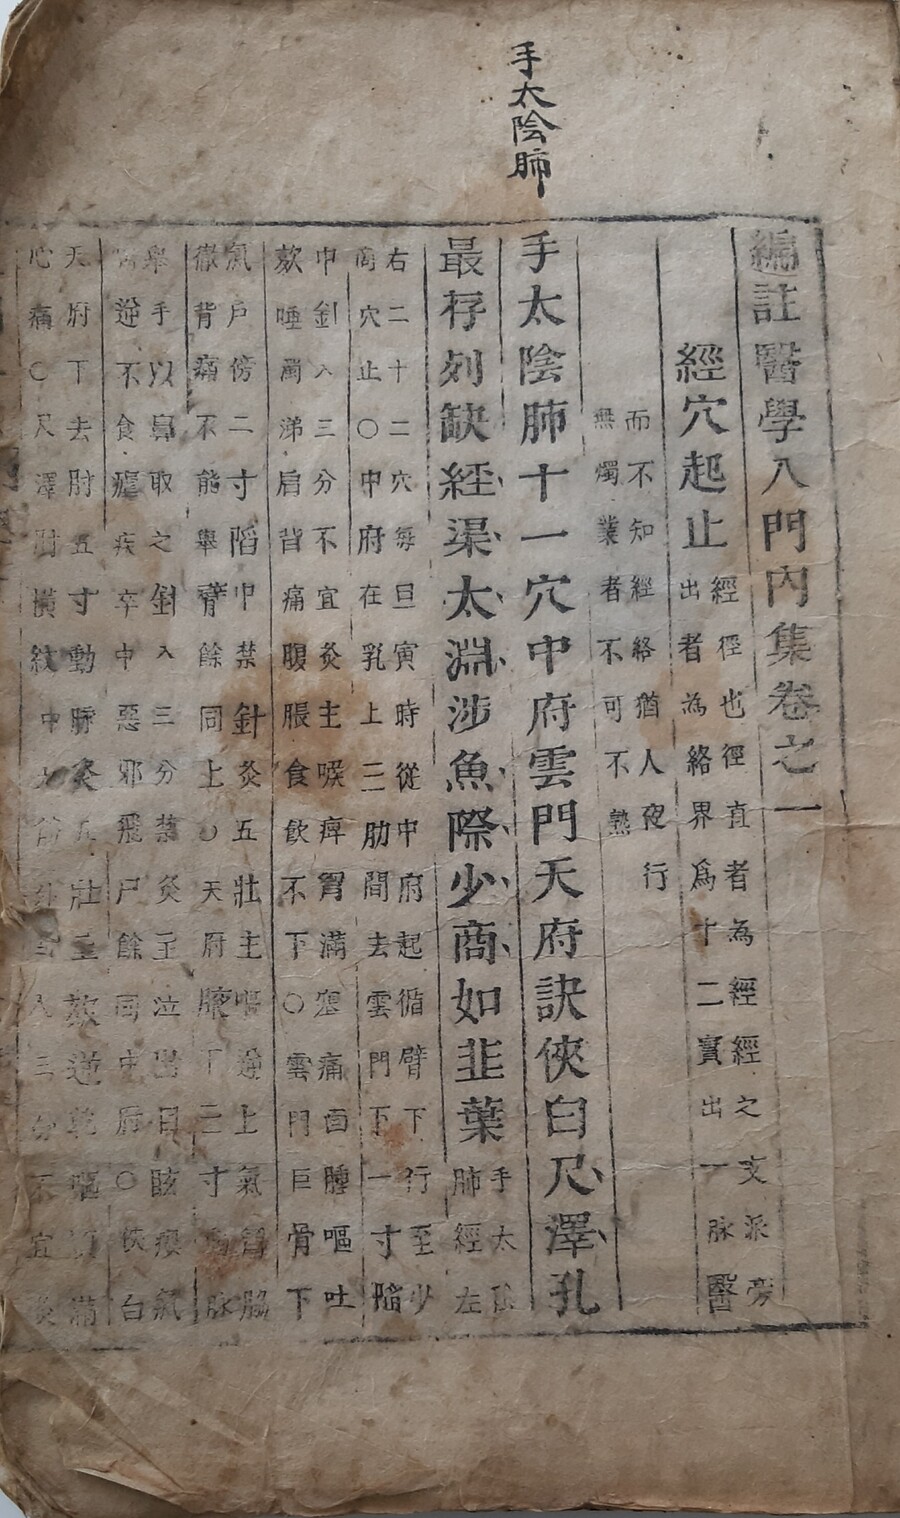 手太陰肺
編註醫學入門內集卷之一
經穴起止
經徑也徑直者為經經之支派旁
出者為絡界為十二實出一脉醫
而不知經絡猶人夜行
無燭業者不可不熟
手太陰肺十一穴中府雲門天府訣俠白尺澤孔
最存列缺經渠太淵涉魚際少商如韭葉
手太陰
肺經左
右二十二穴每旦寅時從中府起循臂下行至少
商穴止○中府在乳上三肋間去雲門下一寸陷
中針入三分不宜灸主喉痺胃滿塞痛面腫嘔吐
欬唾濁涕肩背痛腹脹食飲不下○雲門巨骨下
氣戶傍二寸陷中禁針灸五壯主嘔逆上氣胸脇
徹背痛不能舉臂餘同上○天府腋下三寸動脉
舉手以鼻取之針入三分禁灸主泣出目眩癭氣
喘逆不食瘧疾卒中惡邪飛尸餘同中府○俠白
天府下去肘五寸動脉灸五壯主欬逆乾嘔煩滿
心痛○尺澤肘橫紋中大筋外針入三分不宜灸